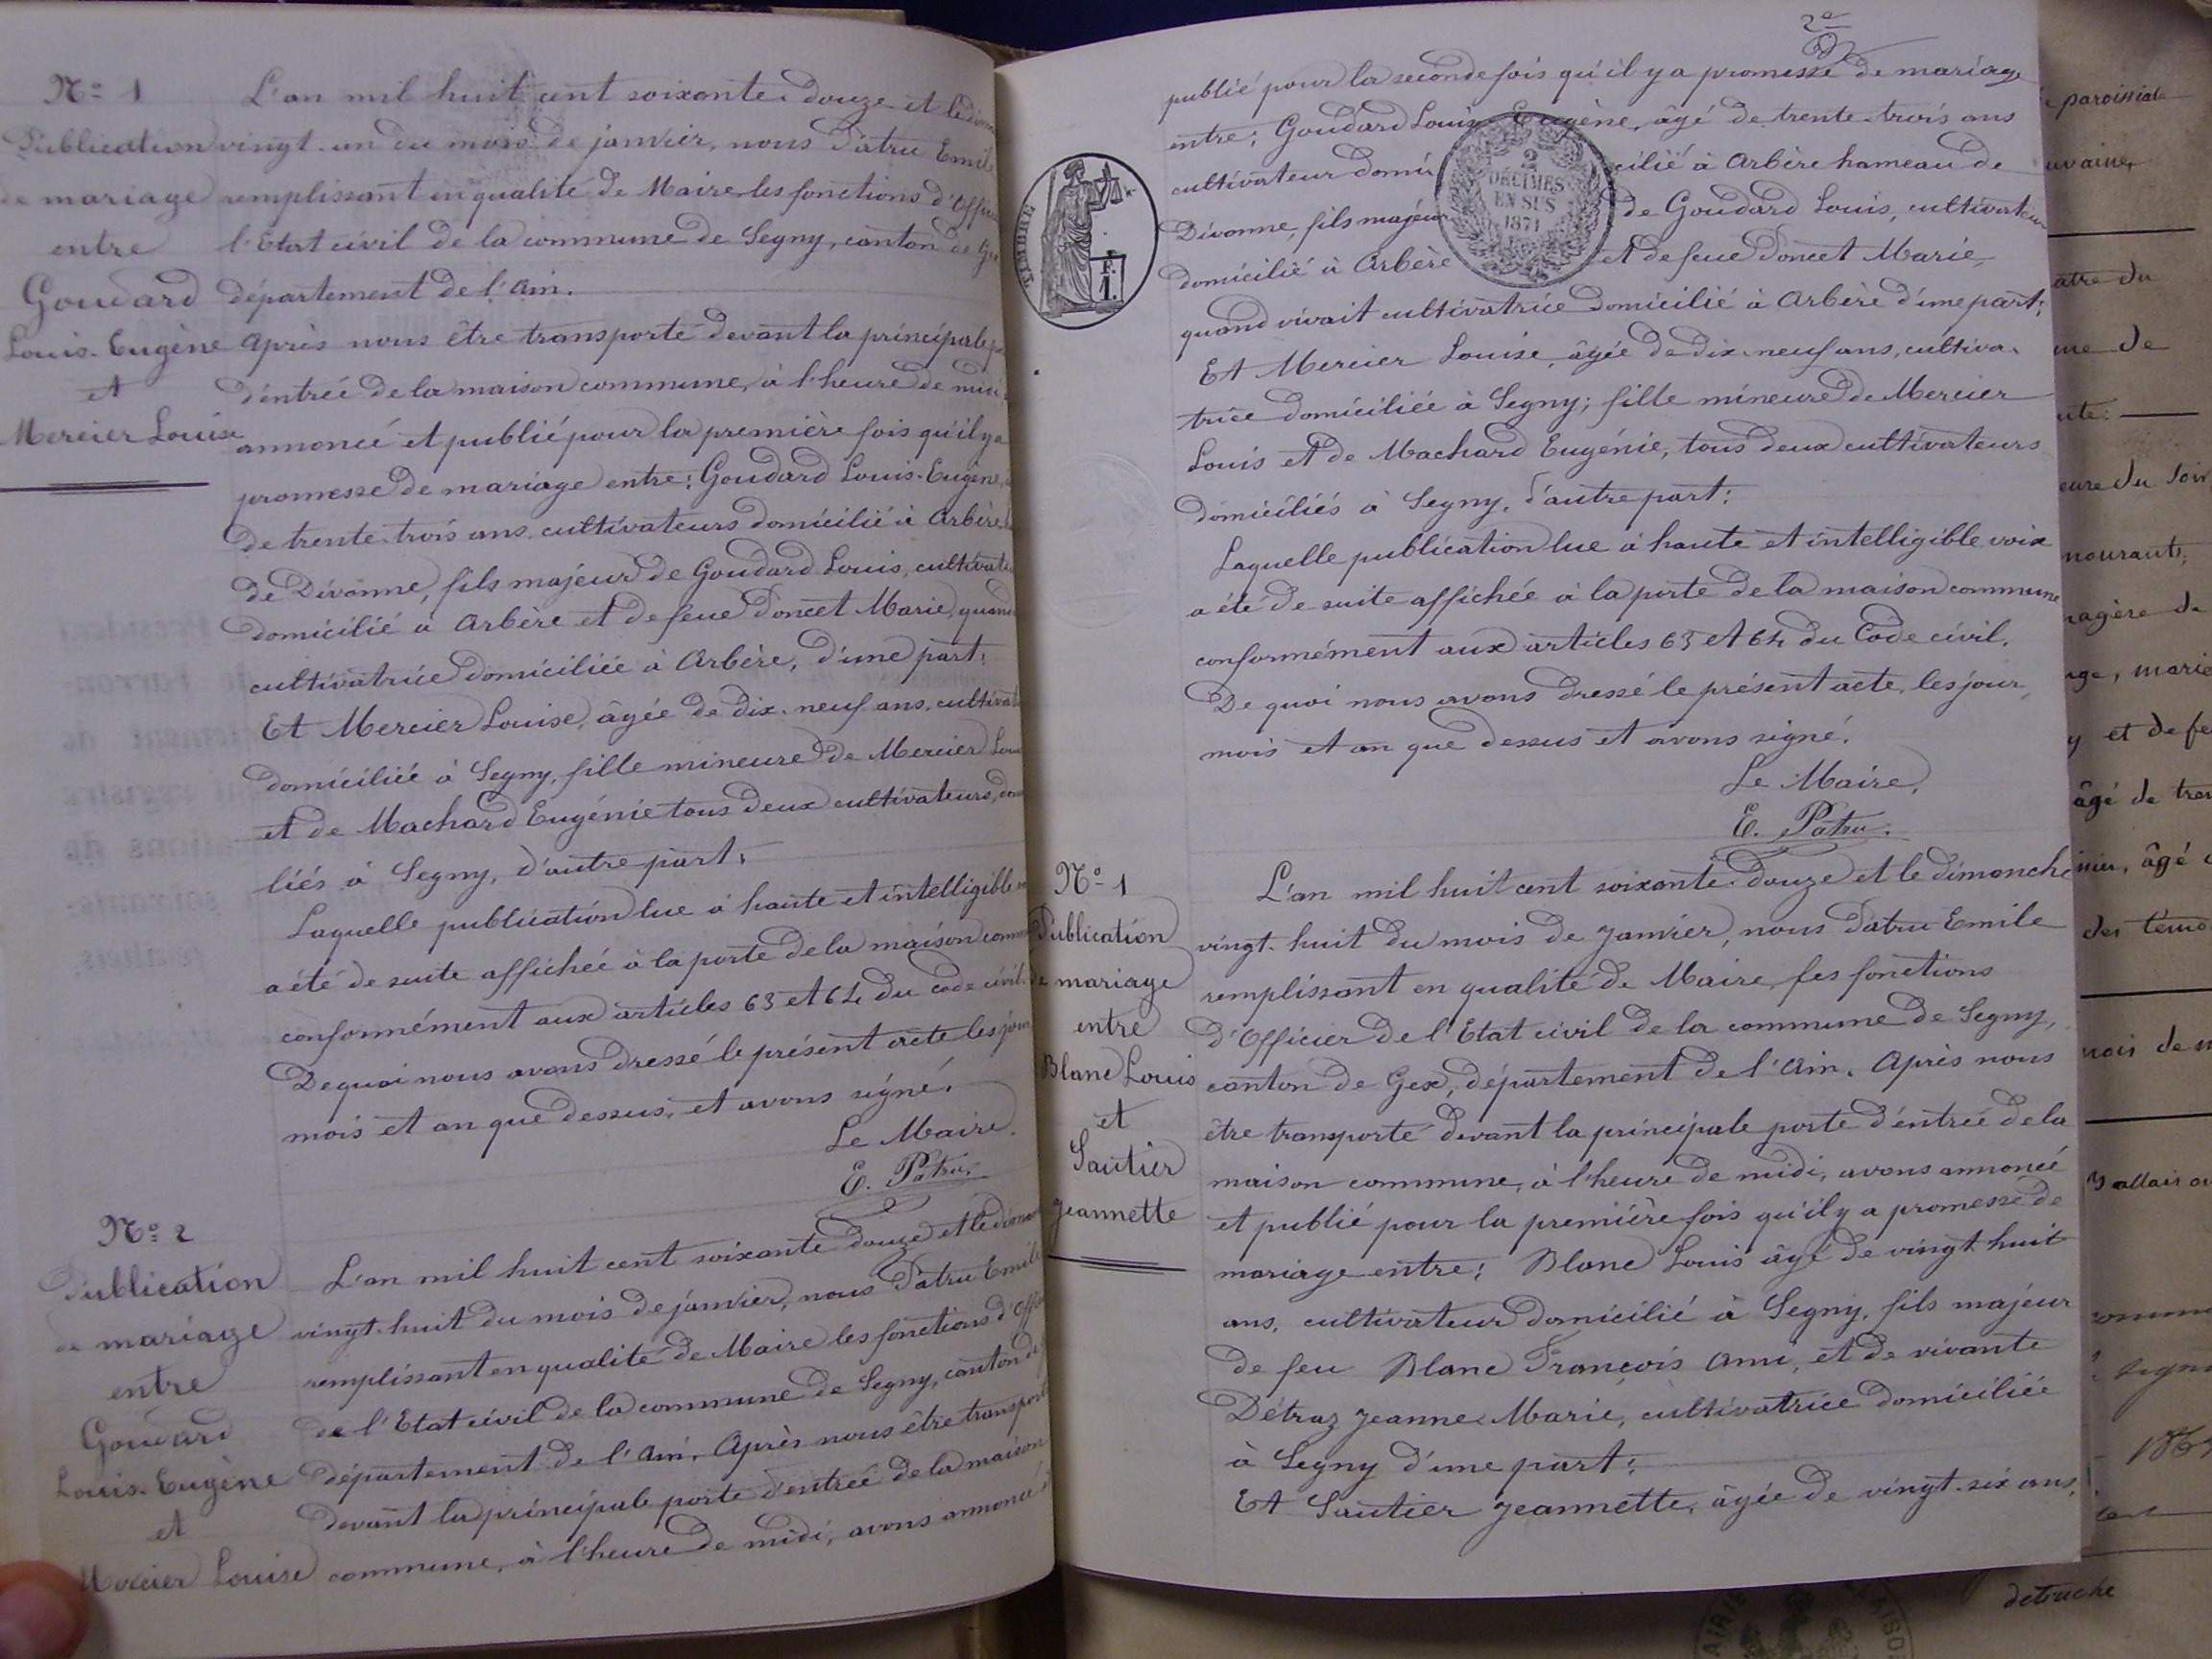 Nº 1
Publication
de mariage
entre
Goudard
Louis-Eugène
et
Mercier Louise
L'an mil huit cent soixante-douze et le
vingt-un du mois de janvier, nous Patru Emile
remplissant en qualité de Maire les fonctions d'
l'Etat civil de la commune de Segny, canton de
département de l'Ain.
Après nous être transporté devant la principale
d'entrée de la maison commune, à l'heure de midi
annoncé et publié pour la première fois qu'il y a
promesse de mariage entre: Goudard Louis-Eugène,
de trente-trois ans cultivateurs domicilié à Arbère
de Divonne, fils majeur de Goudard Louis, cultivate
domicilié à Arbère et de feue Poncet Marie, quand
cultivatrice domiciliée à Arbère, d'une part;
Et Mercier Louise, âgée de dix-neuf ans, cultivat
domiciliée à Segny, fille mineure de Mercier Loui
et de Machard Eugénie tous deux cultivateurs, domi
liés à Segny, d'autre part;
Laquelle publication lue à haute et intelligible
a été de suite affichée à la porte de la maison comm
conformément aux articles 63 et 64 du Code civil.
De quoi nous avons dressé le présent acte les jour
mois et an que dessus, et avons signé.
Le Maire,
E. Patru.
Nº 2
Publication
de mariage
entre
Goudard
Louis-Eugène
et
Mercier Louise
L'an mil huit cent soixante douze et le diman
vingt-huit du mois de janvier, nous Patru Emile
remplissant en qualité de Maire les fonctions d'Offi
de l'Etat civil de la commune de Segny, canton de
département de l'Ain. Après nous être transporté
devant la principale porte d'entrée de la maison
commune, à l'heure de midi, avons annoncé
2e
publié pour la seconde fois qu'il y a promesse de mariage
entre: Goudard Louis Eugène, âgé de trente-trois ans
cultivateur domicilié à Arbère hameau de
Divonne, fils majeur de Goudard Louis, cultivateur
domicilié à Arbère et de feue Poncet Marie,
quand vivait cultivatrice domicilié à Arbère d'une part;
Et Mercier Louise, âgée de dix-neuf ans, cultiva-
trice domiciliée à Segny; fille mineure de Mercier
Louis et de Machard Eugénie, tous deux cultivateurs
domiciliés à Segny, d'autre part;
Laquelle publication lue à haute et intelligible voix
a été de suite affichée à la porte de la maison commune
conformément aux articles 63 et 64 du Code civil.
De quoi nous avons dressé le présent acte, les jour,
mois et an que dessus et avons signé.
Le Maire,
E. Patru.
TIMBRE
F.
1.
2
DÉCIMES
EN SUS
1871
Nº 1
Publication
de mariage
entre
Blanc Louis
et
Sautier
Jeannette
L'an mil huit cent soixante-douze et le dimanche
vingt-huit du mois de Janvier, nous Patru Emile
remplissant en qualité de Maire, les fonctions
d'Officier de l'Etat civil de la commune de Segny,
canton de Gex, département de l'Ain. Après nous
être transporté devant la principale porte d'entrée de la
maison commune, à l'heure de midi, avons annoncé
et publié pour la première fois qu'il y a promesse de
mariage entre: Blanc Louis âgé de vingt huit
ans, cultivateur domicilié à Segny, fils majeur
de feu Blanc François Ami, et de vivante
Détraz Jeanne Marie, cultivatrice domiciliée
à Segny d'une part;
Et Sautier Jeannette, âgée de vingt-six ans,
paroissiale
me de
eure du soir
mourant,
nagère de
âge, marie
y et de fe
âgé de tre
âgé
des témo
mois de
détruche